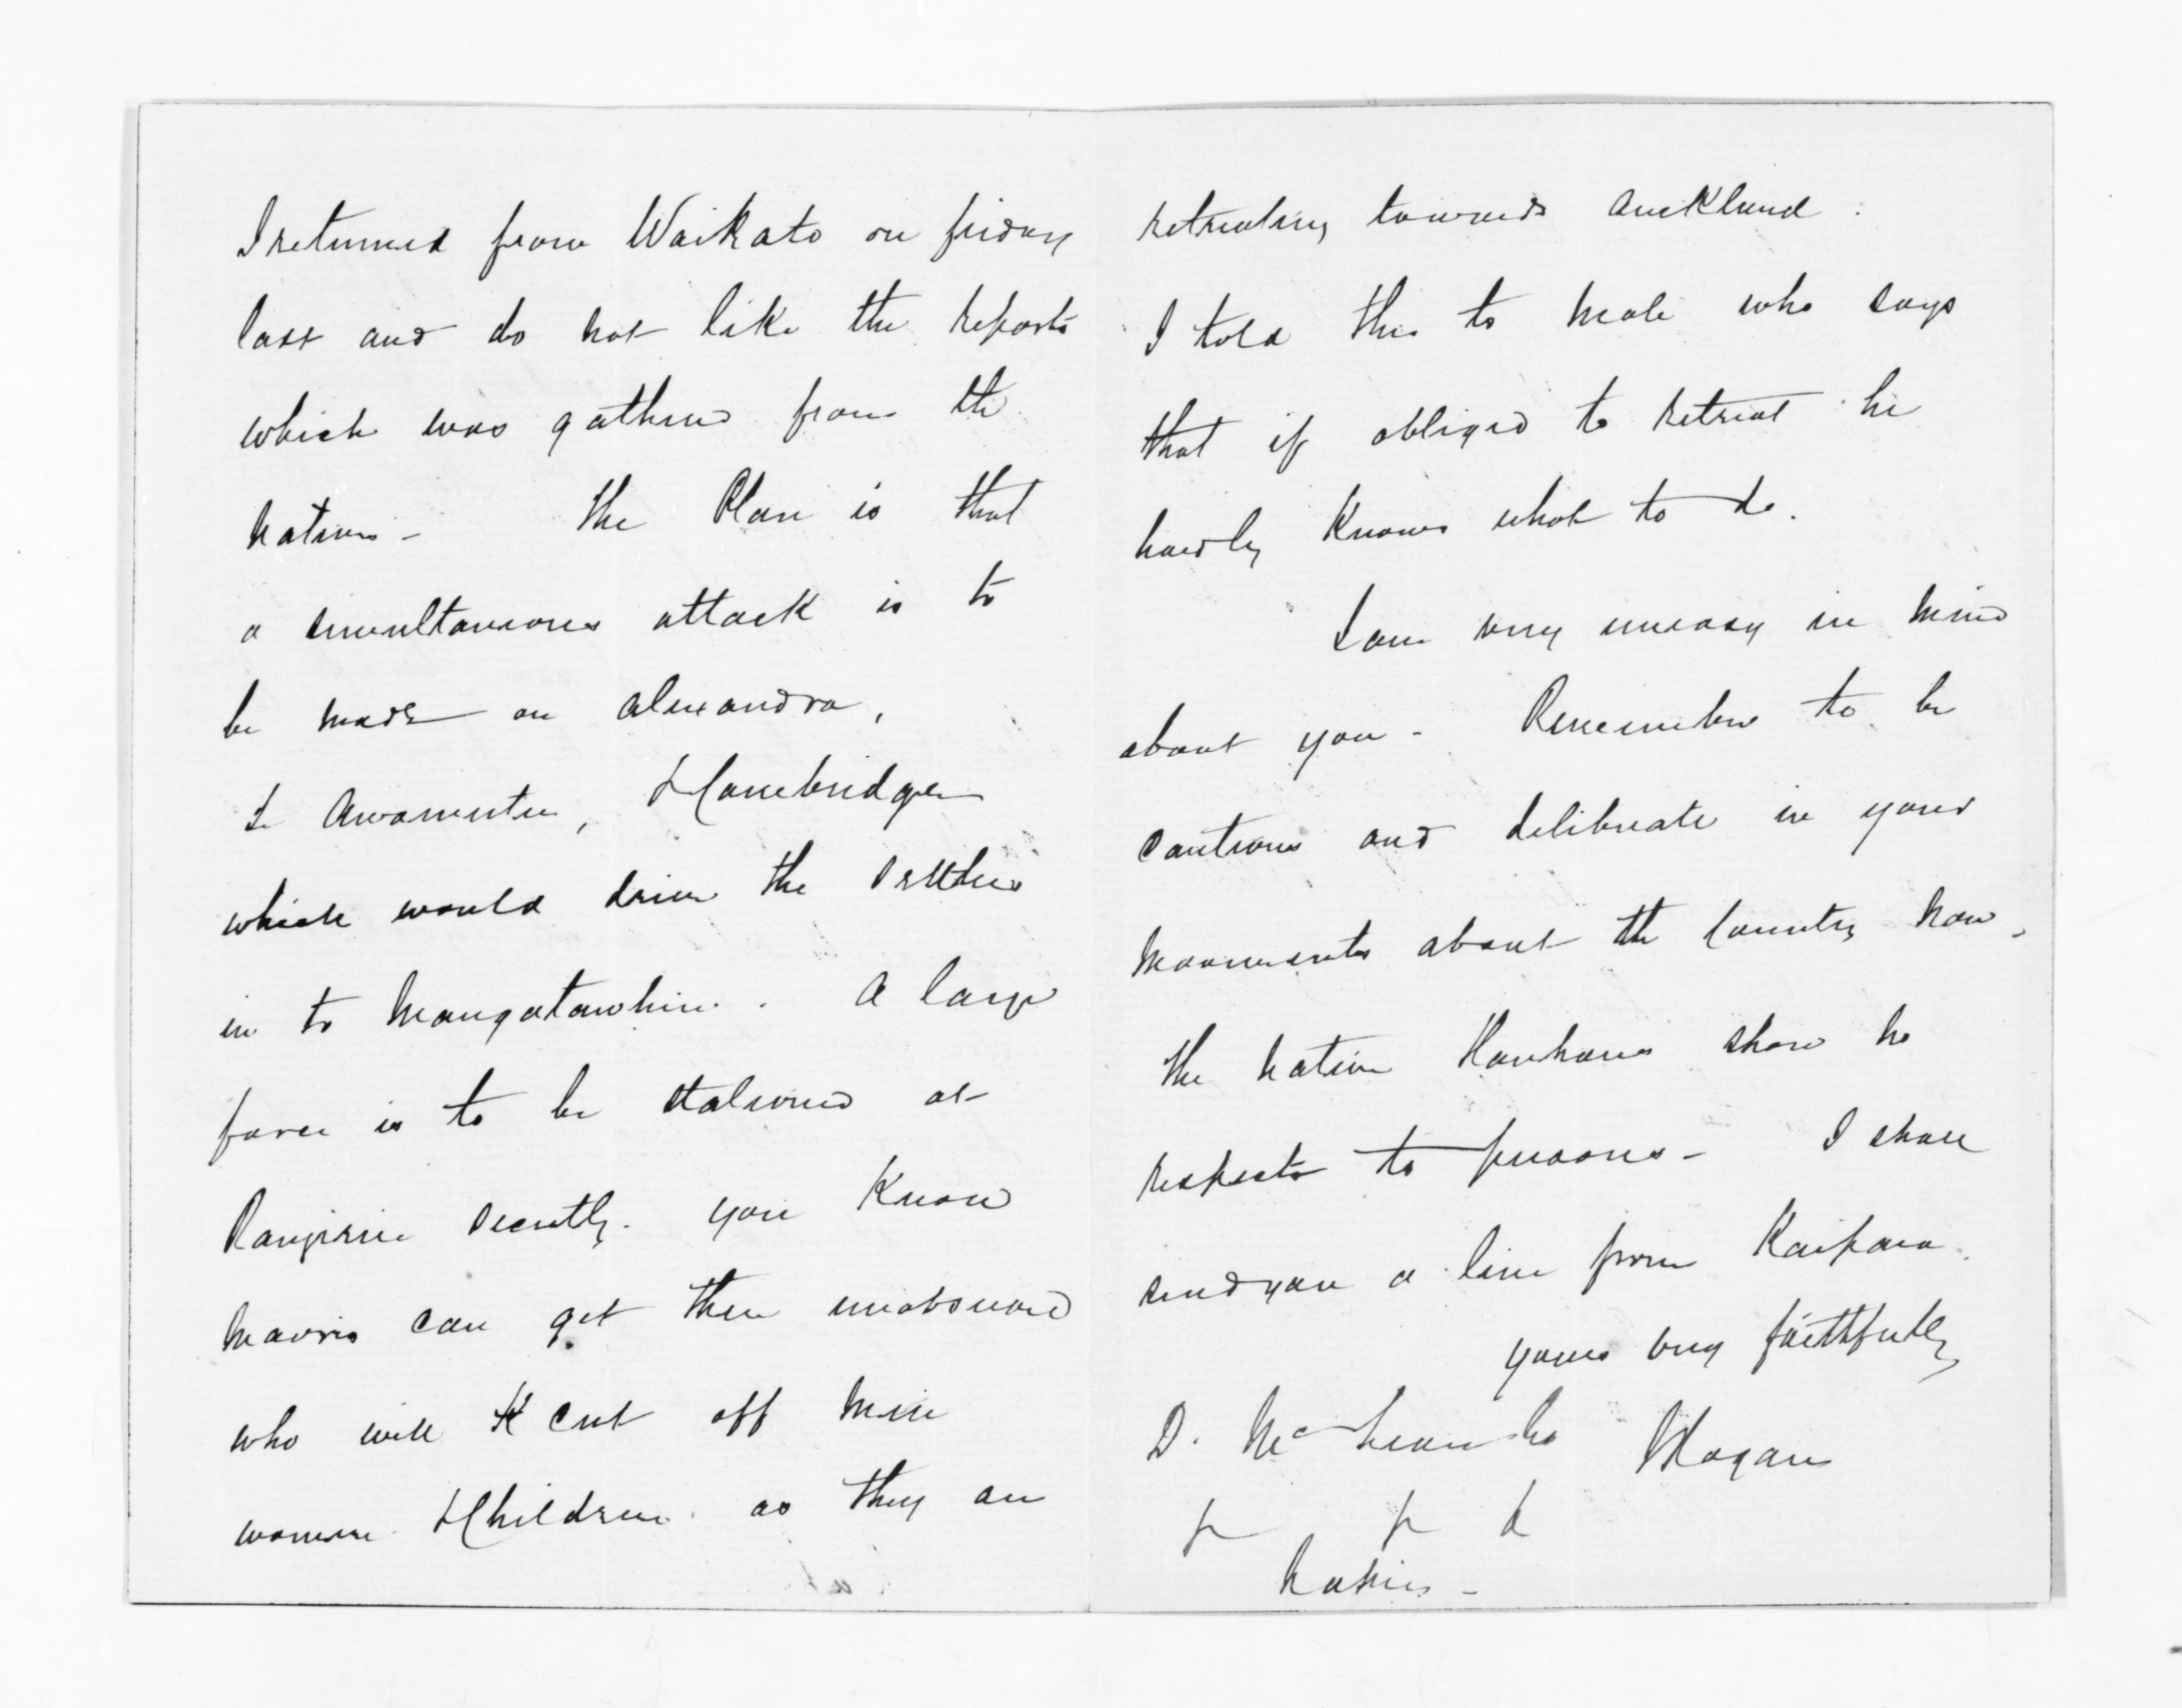 I returned from Waikato on friday
last and do not like the reports
which was gathered from the
natives - The Plan is that
a simultaneous attack is to
be made on alexandra,
Te Awamutu, Hamebridge
which would drive the settlers
in to Mangatawhiri. A large
force is to be stationed at
Rangiriri secretly. you Know
maoris can get there unobserved
who will cut off men
women & Children as they are
retreating towards auckland.
I told this to who says
that if obliged to retreat he
hardly Knows what to do.
I am very uneasy in mind
about you - Remember to be
cautious and deliberate in your
movements about the Country now,
The native Hauhaus show no
respects to persons - I shall
send you a line from Kaipara.
yours very faithfully
D. McLean Esq Hogan
Napier -